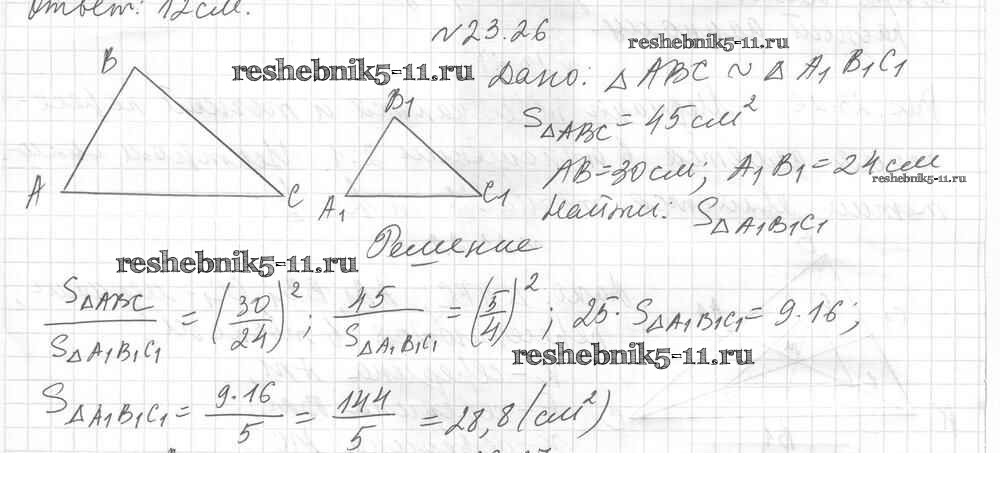 Ответ: 12 см.
№23.26
reshebnik5-11.ru
reshebnik5-11.ru
Дано: △ABC ~ △A₁B₁C₁
B
B₁
S△ABC = 45 см²
AB = 30 см; A₁B₁ = 24 см
reshebnik5-11.ru
A
C
A₁
C₁
Найти: S△A₁B₁C₁
Решение
reshebnik5-11.ru
S△ABC / S△A₁B₁C₁ = (30/24)²; 45 / S△A₁B₁C₁ = (5/4)²; 25 · S△A₁B₁C₁ = 9·16;
reshebnik5-11.ru
S△A₁B₁C₁ = 9·16 / 5 = 144 / 5 = 28,8 (см²)